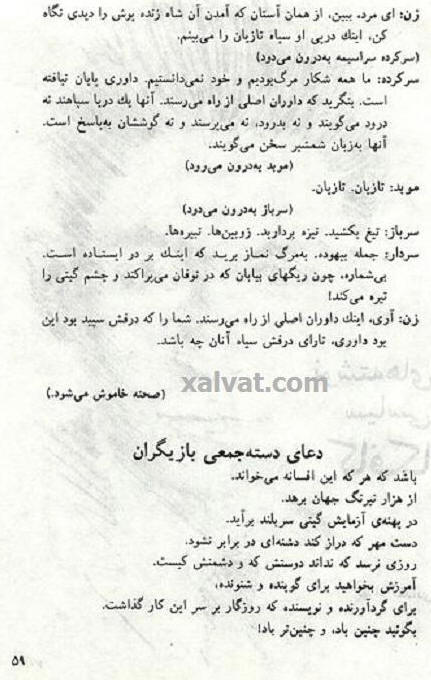 زن: ای مرد، ببین، از همان آستان که آمدن آن شاه ژنده پوش را دیدی نگاه
کن، اینك درپی او سپاه تازیان را می‌بینم.
(سرکرده سراسیمه به‌درون می‌دود)
سرکرده: ما همه شکار مرگ‌بودیم و خود نمی‌دانستیم. داوری پایان نیافته
است. بنگرید که داوران اصلی از راه می‌رسند. آنها یك دریا سپاهند نه
درود می‌گویند و نه بدرود، نه می‌پرسند و نه گوششان به‌پاسخ است.
آنها به‌زبان شمشیر سخن می‌گویند.
(موبد به‌درون می‌رود)
موبد: تازیان. تازیان.
(سرباز به‌درون می‌دود)
سرباز: تیغ بکشید. نیزه بردارید. زوبین‌ها. تبیره‌ها.
سردار: جمله بیهوده. به‌مرگ نماز برید که اینك بر در ایستاده است.
بی‌شماره، چون ریگهای بیابان که در توفان می‌پراکند و چشم گیتی را
تیره می‌کند!
زن: آری، اینك داوران اصلی از راه می‌رسند. شما را که درفش سپید بود این
بود داوری، تارای درفش سیاه آنان چه باشد.
xalvat.com
(صحنه خاموش می‌شود.)
دعای دسته‌جمعی بازیگران
باشد که هر که این افسانه می‌خواند.
از هزار نیرنگ جهان برهد.
در پهنه‌ی آزمایش گیتی سربلند برآید.
دست مهر که دراز کند دشنه‌ای در برابر نشود.
روزی نرسد که نداند دوستش که و دشمنش کیست.
آمرزش بخواهید برای گوینده و شنونده،
برای گردآورنده و نویسنده که روزگار بر سر این کار گذاشت.
بگوئید چنین باد، و چنین‌تر باد!
۵۹